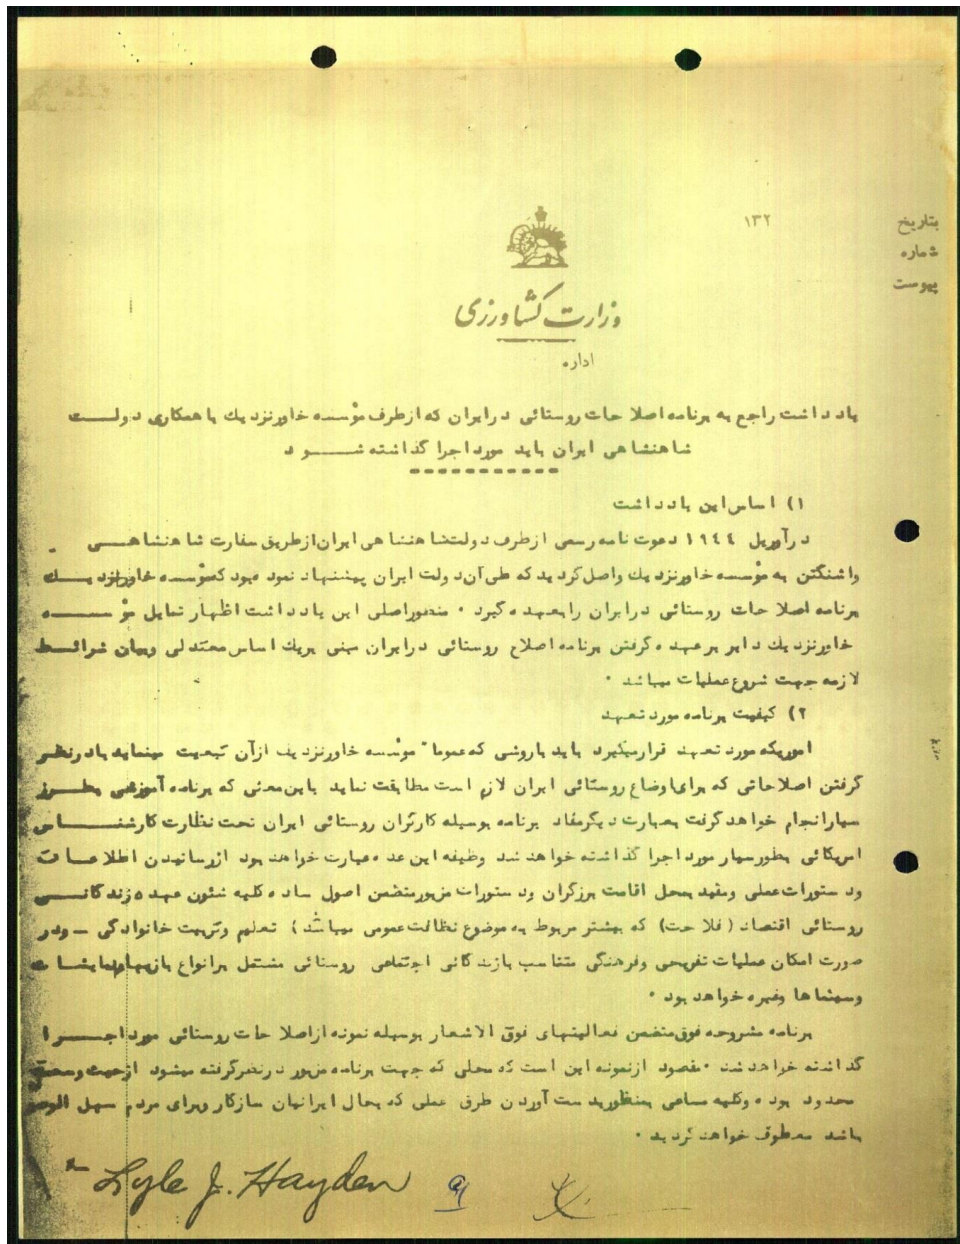 بتاریخ
۱۳۲
شماره
پیوست
وزارت کشاورزی
اداره
یادداشت راجع به برنامه اصلاحات روستائی در ایران که از طرف مؤسسه خاور نزدیك با همکاری دولت
شاهنشاهی ایران باید مورد اجرا گذاشته شود
۱) اساس این یادداشت
در آوریل ۱۹٤٤ دعوت نامه رسمی از طرف دولت شاهنشاهی ایران از طریق سفارت شاهنشاهی
واشنگتن به مؤسسه خاور نزدیك واصل گردید که طی آن دولت ایران پیشنهاد نمود بود که مؤسسه خاور نزدیك
برنامه اصلاحات روستائی در ایران را بعهده گیرد ۰ منظور اصلی این یادداشت اظهار تمایل مؤسسه
خاور نزدیك دایر بر عهده گرفتن برنامه اصلاح روستائی در ایران مبنی بریك اساس معتدلی وبیان شرائط
لازمه جهت شروع عملیات میباشد ۰
۲) کیفیت برنامه مورد تعهد
اموریکه مورد تعهد قرار میگیرد باید باروشی که عموماً مؤسسه خاور نزدیك از آن تبعیت مینماید بادر نظر
گرفتن اصلاحاتی که برای اوضاع روستائی ایران لازم است مطابقت نماید باین معنی که برنامه آموزشی بطرز
سیار انجام خواهد گرفت بعبارت دیگر مفاد برنامه بوسیله کارگران روستائی ایران تحت نظارت کارشناس
امریکائی بطور سیار مورد اجرا گذاشته خواهد شد وظیفه این عده عبارت خواهد بود از رسانیدن اطلاعات
ودستورات عملی ومفید بمحل اقامت برزگران ودستورات مزبور متضمن اصول ساده کلیه شئون عمده زندگانی
روستائی اقتصاد (فلاحت) که بیشتر مربوط به موضوع نظافت عمومی میباشد) تعلیم وتربیت خانوادگی – ودر
صورت امکان عملیات تفریحی وفرهنگی متناسب بازندگانی اجتماعی روستائی مشتمل برانواع بازیها نمایشات
وسینماها وغیره خواهد بود ۰
برنامه مشروحه فوق متضمن فعالیتهای فوق الاشعار بوسیله نمونه از اصلاحات روستائی مورد اجرا
گذاشته خواهد شد ۰ مقصود از نمونه این است که محلی که جهت برنامه مزبور در نظر گرفته میشود از حیث وسعت
محدود بوده وکلیه مساعی بمنظور بدست آوردن طرق عملی که بحال ایرانیان سازگار وبرای مردم سهل الوصول
باشد معطوف خواهد گردید ۰
Lyle J. Hayden